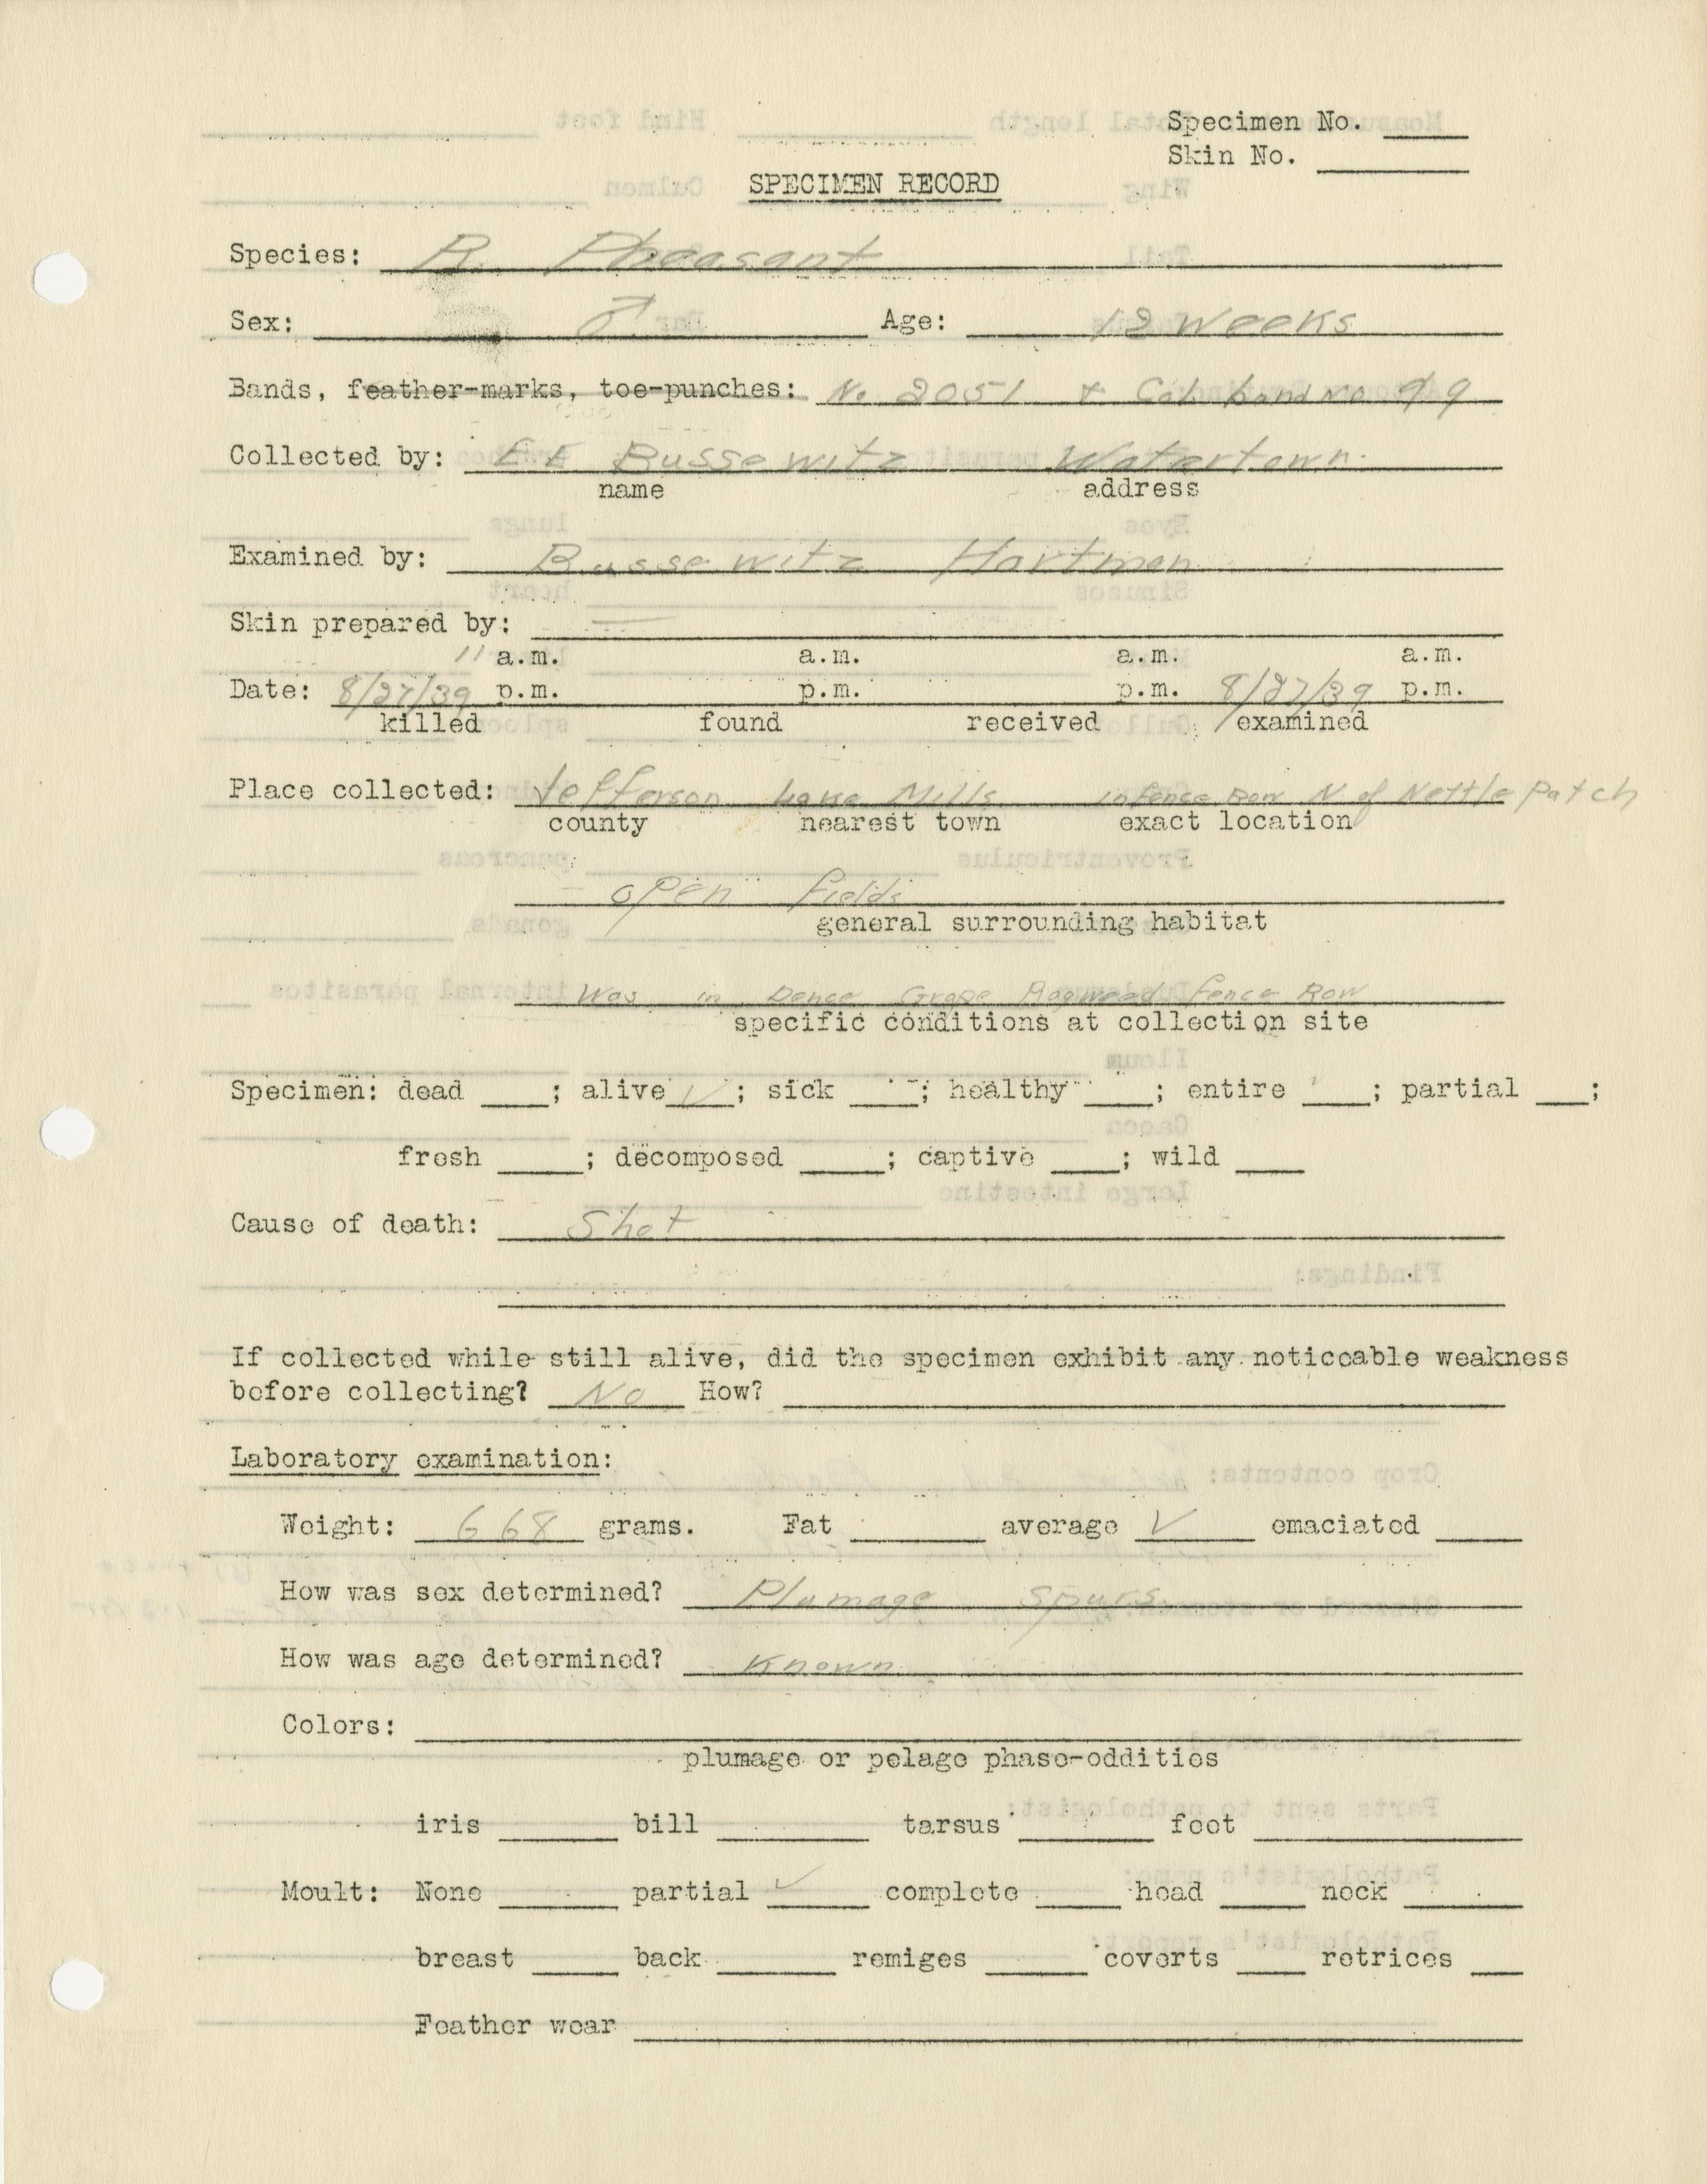 Specimen No. ____
Skin No. ____
SPECIMEN RECORD
Species: R. Pheasant
Sex: ♂ Age: 12 Weeks
Bands, feather-marks, toe-punches: No 2051 + Col. band No 99
Collected by: E E Bussewitz Watertown.
name address
Examined by: Bussewitz Hartman
Skin prepared by: —
11 a.m. a.m. a.m. a.m.
Date: 8/27/39 p.m. p.m. p.m. 8/27/39 p.m.
killed found received examined
Place collected: Jefferson Lake Mills in fence Row N of Nettle Patch
county nearest town exact location
open fields
general surrounding habitat
Was in Dence Grape Ragweed fence Row
specific conditions at collection site
Specimen: dead ____; alive ✓; sick ____; healthy ____; entire ____; partial ____;
fresh ____; decomposed ____; captive ____; wild ____
Cause of death: Shot
If collected while still alive, did the specimen exhibit any noticeable weakness
before collecting? No How? ____
Laboratory examination:
Weight: 668 grams. Fat ____ average ✓ emaciated ____
How was sex determined? Plumage Spurs
How was age determined? Known
Colors: ____
plumage or pelage phase-oddities
iris ____ bill ____ tarsus ____ foot ____
Moult: None ____ partial ✓ complete ____ head ____ neck ____
breast ____ back ____ remiges ____ coverts ____ retrices ____
Feather wear ____